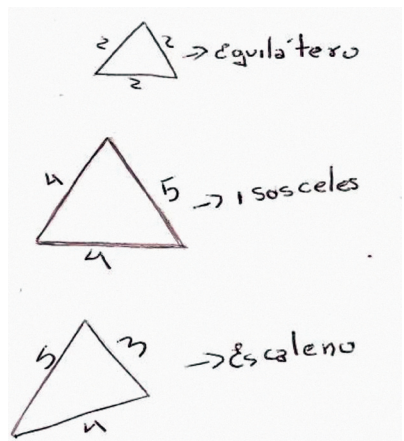 2 2 → Equilátero
2
4 5 → Isosceles
4
5 3 → Escaleno
4